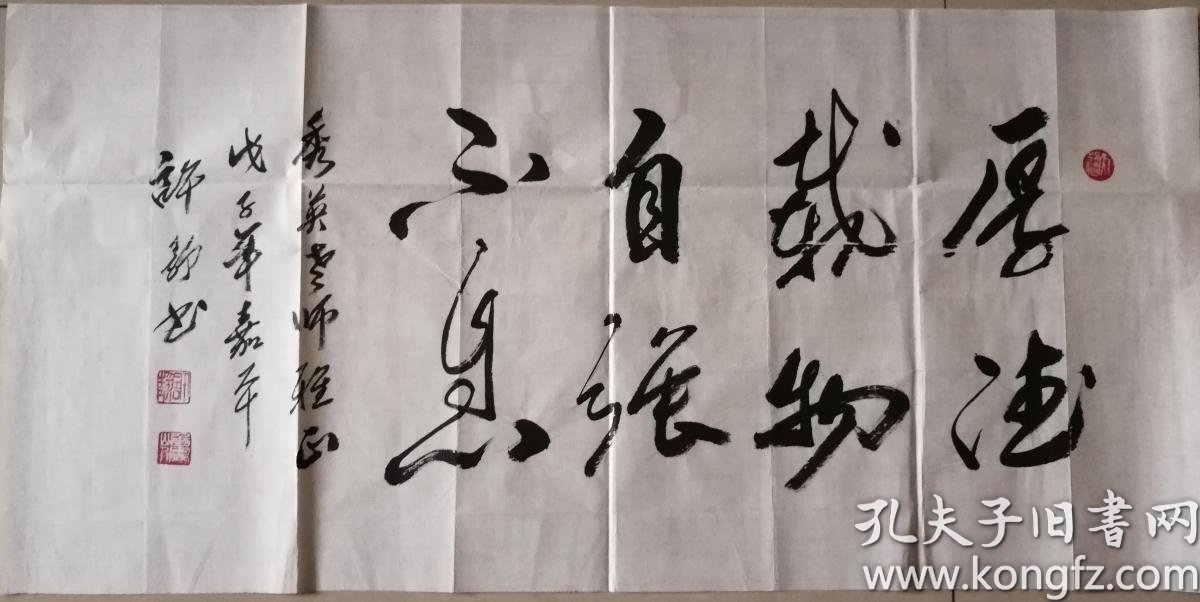 厚德
载物
自强
不息
秀英老师雅正
戊子年嘉平
许静书
孔夫子旧書网
www.kongfz.com